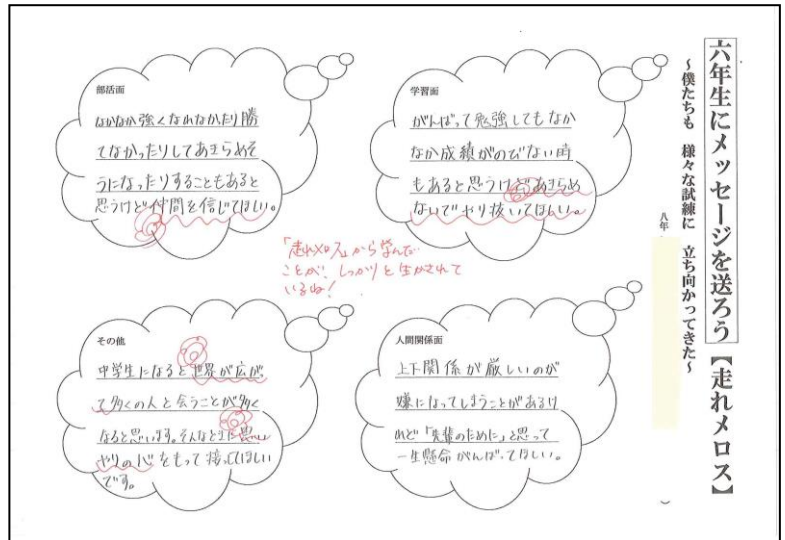 六年生にメッセージを送ろう【走れメロス】
~僕たちも 様々な試練に 立ち向かってきた~
八年
)
学習面
がんばって勉強してもなか
なか成績がのびない時
もあると思うけどあきらめ
ないでやり抜いてほしい。
部活面
なかなか強くなれなかたり勝
てなかったりしてあきらめそ
うになったりすることもあると
思うけど仲間を信じてほしい。
「走れメロス」から学んだ
ことが、しっかりと生かされて
いるね!
人間関係面
上下関係が厳しいのが
嫌になってしまうことがあるけ
れど「先輩のために」と思って
一生懸命がんばってほしい。
その他
中学生になると世界が広がっ
て多くの人と会うことが多く
なると思います。そんなときに思い
やりの心をもって接してほしい
です。